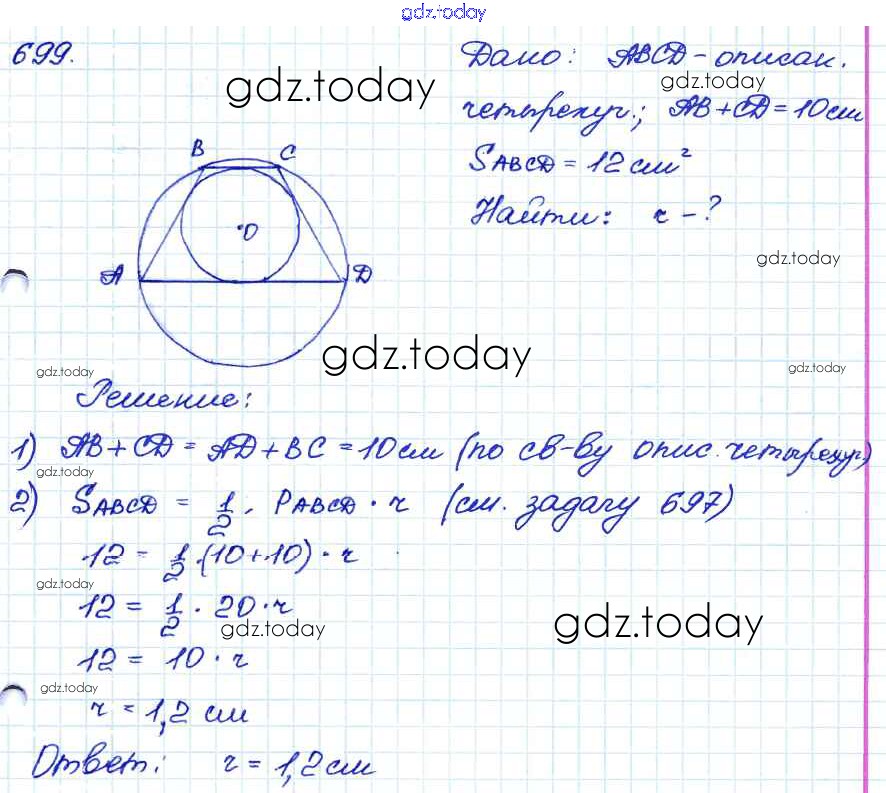 gdz.today
699.
Дано: ABCD - описан.
gdz.today
gdz.today
четырехуг.; AB + CD = 10 см
B C
S ABCD = 12 см²
Найти: r - ?
O
gdz.today
A D
gdz.today
gdz.today
gdz.today
Решение:
1) AB + CD = AD + BC = 10 см (по св-ву опис. четырехуг.)
gdz.today
2) S ABCD = 1/2 · P ABCD · r (см. задачу 697)
12 = 1/2 · (10 + 10) · r
gdz.today
12 = 1/2 · 20 · r
gdz.today
gdz.today
12 = 10 · r
gdz.today
r = 1,2 см
Ответ: r = 1,2 см